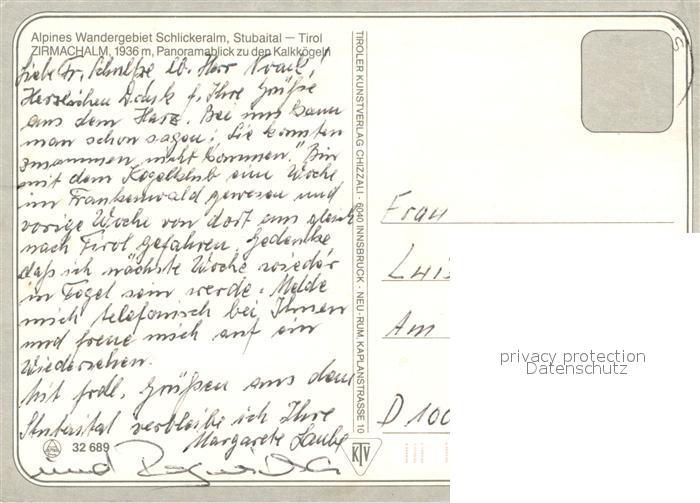 Alpines Wandergebiet Schlickeralm, Stubaital – Tirol
ZIRMACHALM, 1936 m, Panoramablick zu den Kalkkögeln
Liebe Fr. Schulze lb. Herr
Herzlichen Dank f. Ihre Grüße
aus dem Harz. Bei uns kann
man schon sagen: „Sie konnten
zusammen nicht kommen." Bin
mit dem Kegelclub eine Woche
im Frankenwald gewesen und
vorige Woche von dort aus gleich
nach Tirol gefahren. Gedenke
daß ich nächste Woche wieder
in Tegel sein werde. Melde
mich telefonisch bei Ihnen
und freue mich auf ein
Wiedersehen.
Mit frdl. Grüßen aus dem
Stubaital verbleibe ich Ihre
Margarete Laube
und
32 689
TIROLER KUNSTVERLAG CHIZZALI · 6040 INNSBRUCK - NEU-RUM, KAPLANSTRASSE 10
KTV
Frau
Luis
Am
D 100
privacy protection
Datenschutz